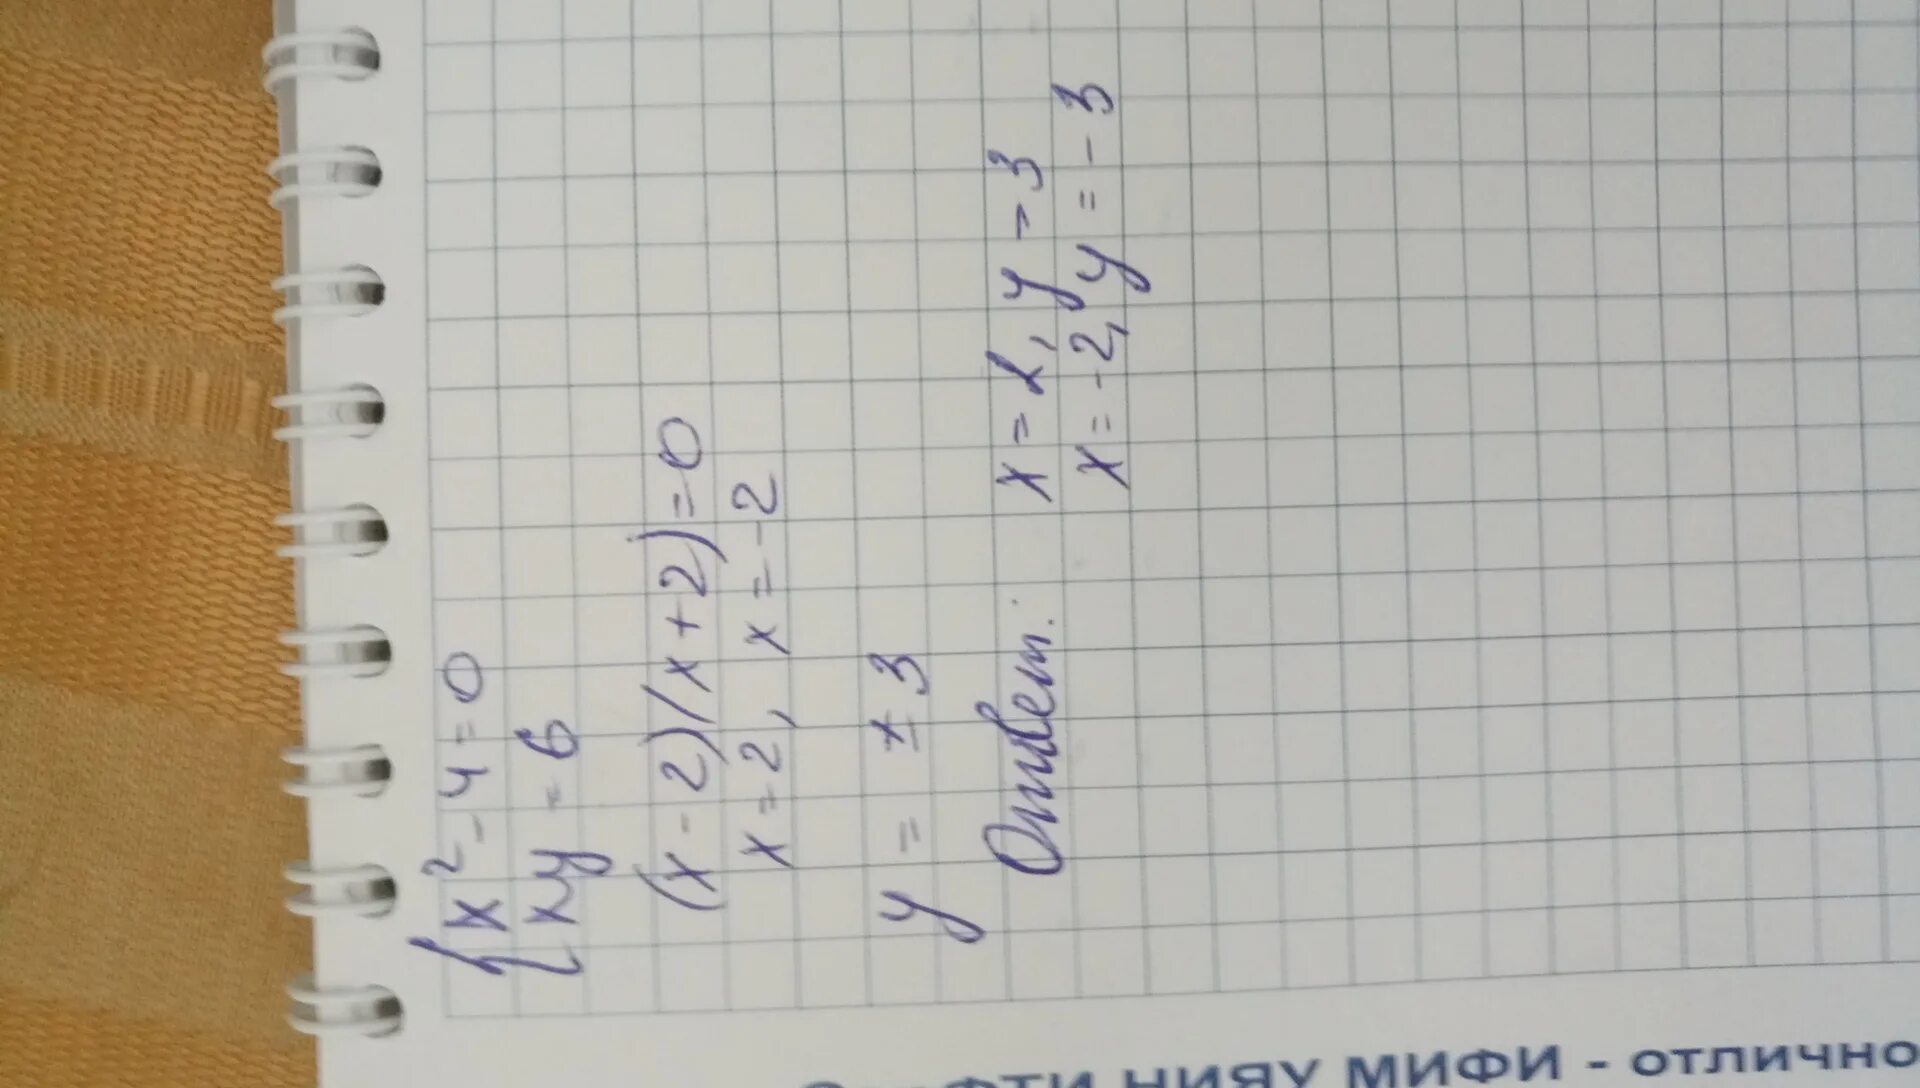 {x² - 4 = 0
xy = 6
(x - 2)(x + 2) = 0
x = 2, x = -2
y = ± 3
Ответ: x = 2, y = 3
x = -2, y = - 3
НИЯУ МИФИ - отлично